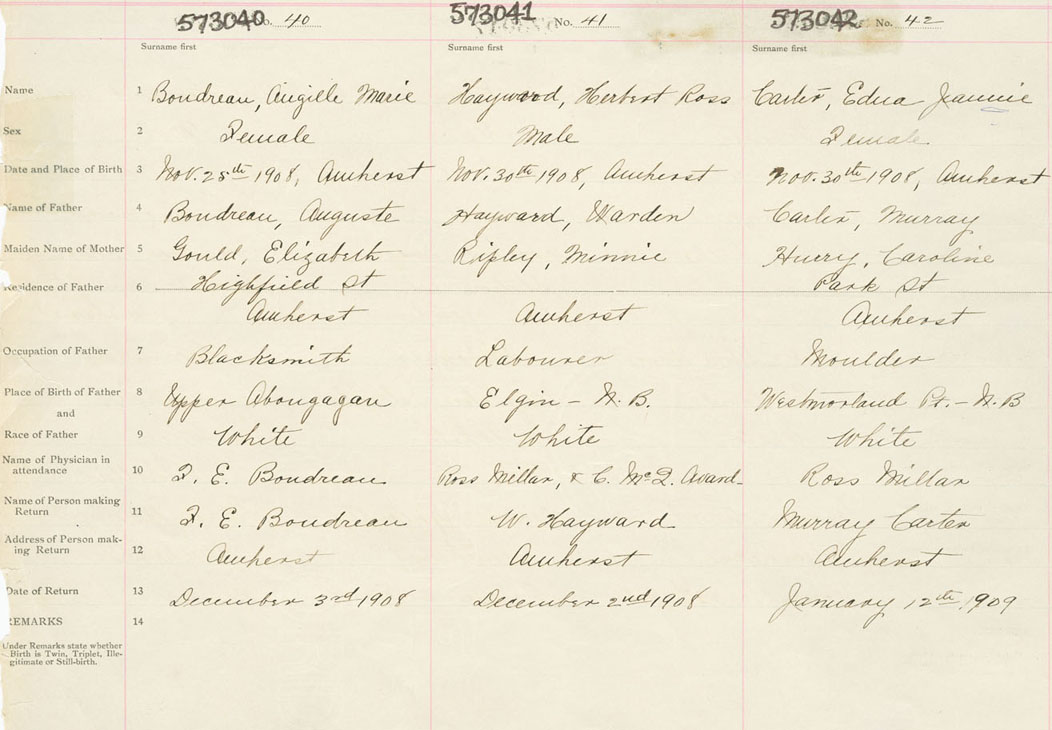 573040 No. 40 573041 No. 41 573042 No. 42
Surname first Surname first Surname first
Name 1 Boudreau, Angille Marie Hayward, Herbert Ross Carter, Edna Jeannie
Sex 2 Female Male Female
Date and Place of Birth 3 Nov. 25th 1908, Amherst Nov. 30th 1908, Amherst Nov. 30th 1908, Amherst
Name of Father 4 Boudreau, Auguste Hayward, Warden Carter, Murray
Maiden Name of Mother 5 Gould, Elizabeth Ripley, Minnie Caroline
Residence of Father 6 Highfield St Park St
Amherst Amherst Amherst
Occupation of Father 7 Blacksmith Labourer Moulder
Place of Birth of Father 8 Upper Abougagau Elgin – N.B. Westmorland Pt. – N.B
and
Race of Father 9 White White White
Name of Physician in
attendance 10 F. E. Boudreau Ross Millar, & C. McQ. Avard Ross Millar
Name of Person making
Return 11 F. E. Boudreau W. Hayward Murray Carter
Address of Person mak-
ing Return 12 Amherst Amherst Amherst
Date of Return 13 December 3rd 1908 December 2nd 1908 January 12th, 1909
REMARKS 14
Under Remarks state whether
Birth is Twin, Triplet, Ille-
gitimate or Still-birth.